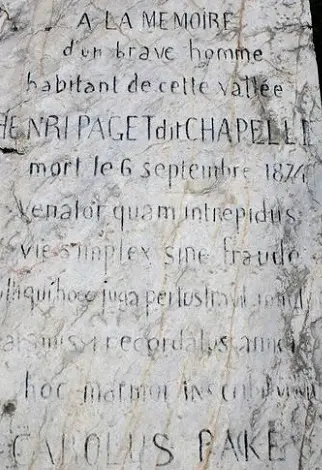 A LA MEMOIRE
d'un brave homme
habitant de cette vallée
HENRI PAGET dit CHAPELLE
mort le 6 septembre 1874
Venator quam intrepidus
vie simplex sine fraude
qui hoc juga perlustravit
recordatus amici
hoc marmor inscribi
CAROLUS PAKE